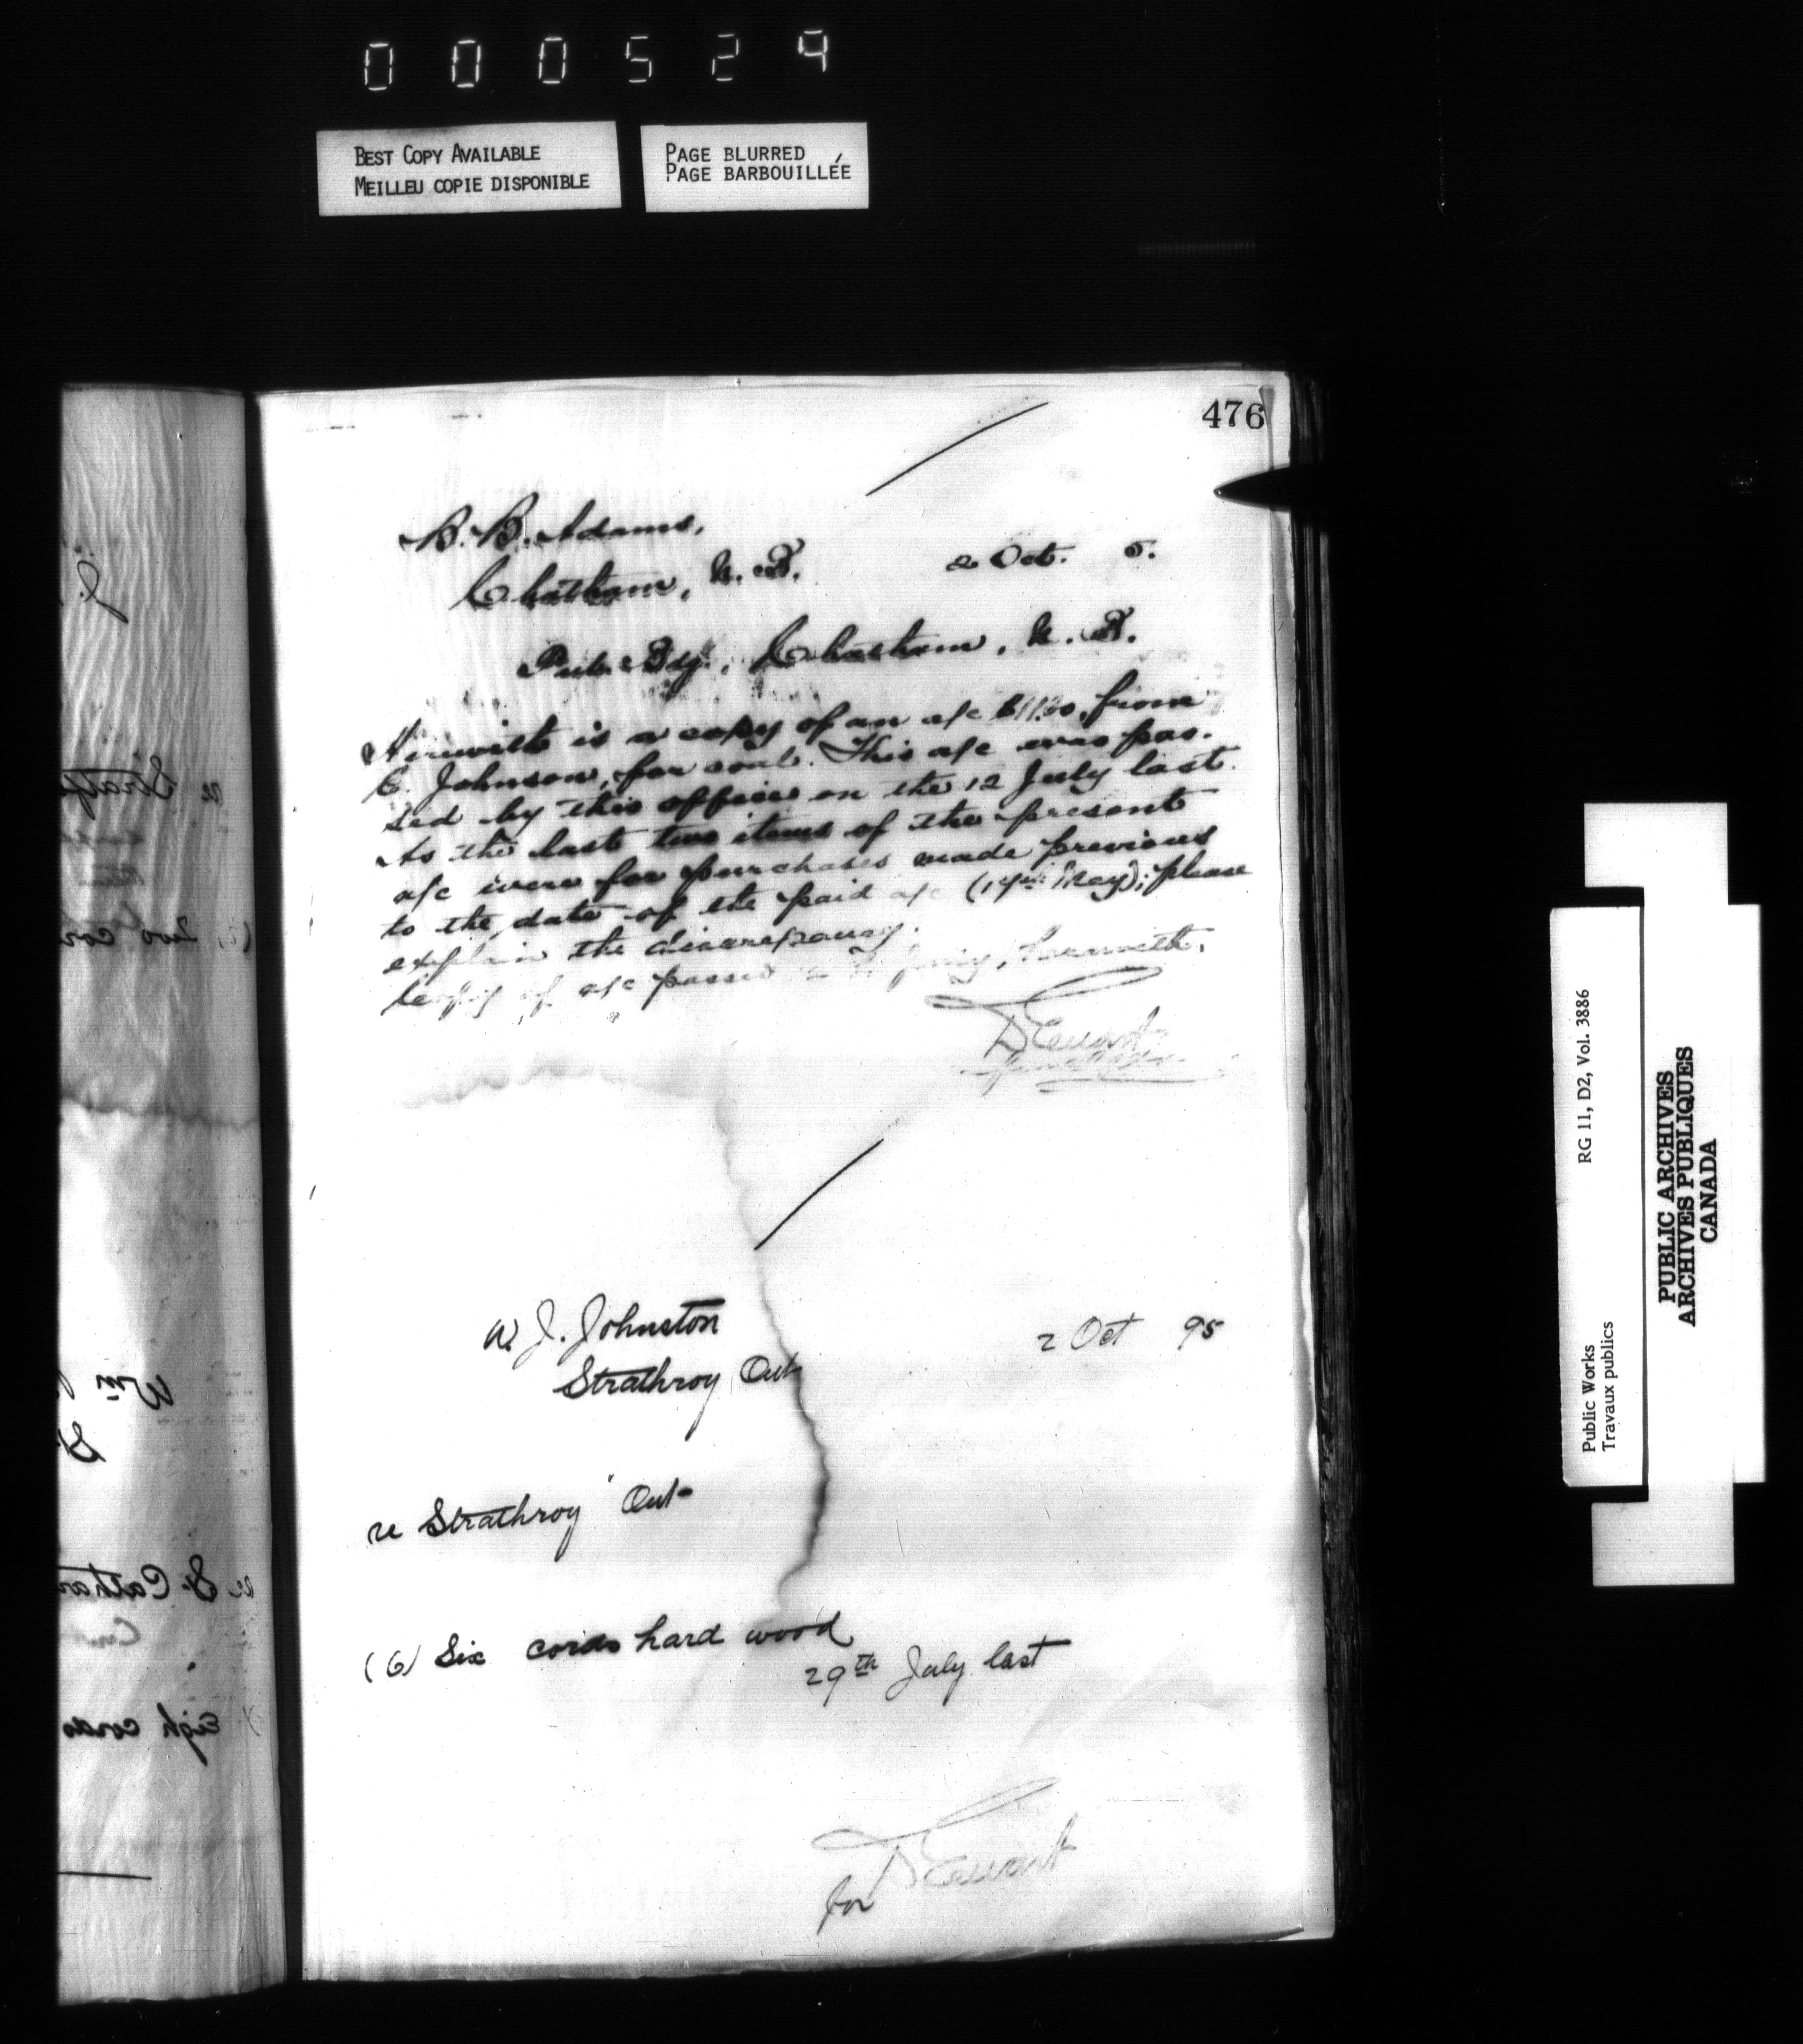 000529
BEST COPY AVAILABLE
MEILLEU COPIE DISPONIBLE
PAGE BLURRED
PAGE BARBOUILLÉE
476
B. B. Adams,
Chatham, N. B. 2 Oct. 5.
Pub. Bdg., Chatham, N. B.
Herewith is a copy of an a/c from
C. Johnson, for coal. This a/c was pas-
sed by this office on the 12 July last.
As the last two items of the present
a/c were for purchases made previous
to the date of the paid a/c (14th May); please
explain the discrepancy.
Copy of a/c passed 12th July, herewith.
D Ewart
W. J. Johnston
Strathroy Ont 2 Oct 95
re Strathroy Ont
(6) Six cords hard wood
29th July last
D Ewart
for
Public Works
Travaux publics
RG 11, D2, Vol. 3886
PUBLIC ARCHIVES
ARCHIVES PUBLIQUES
CANADA